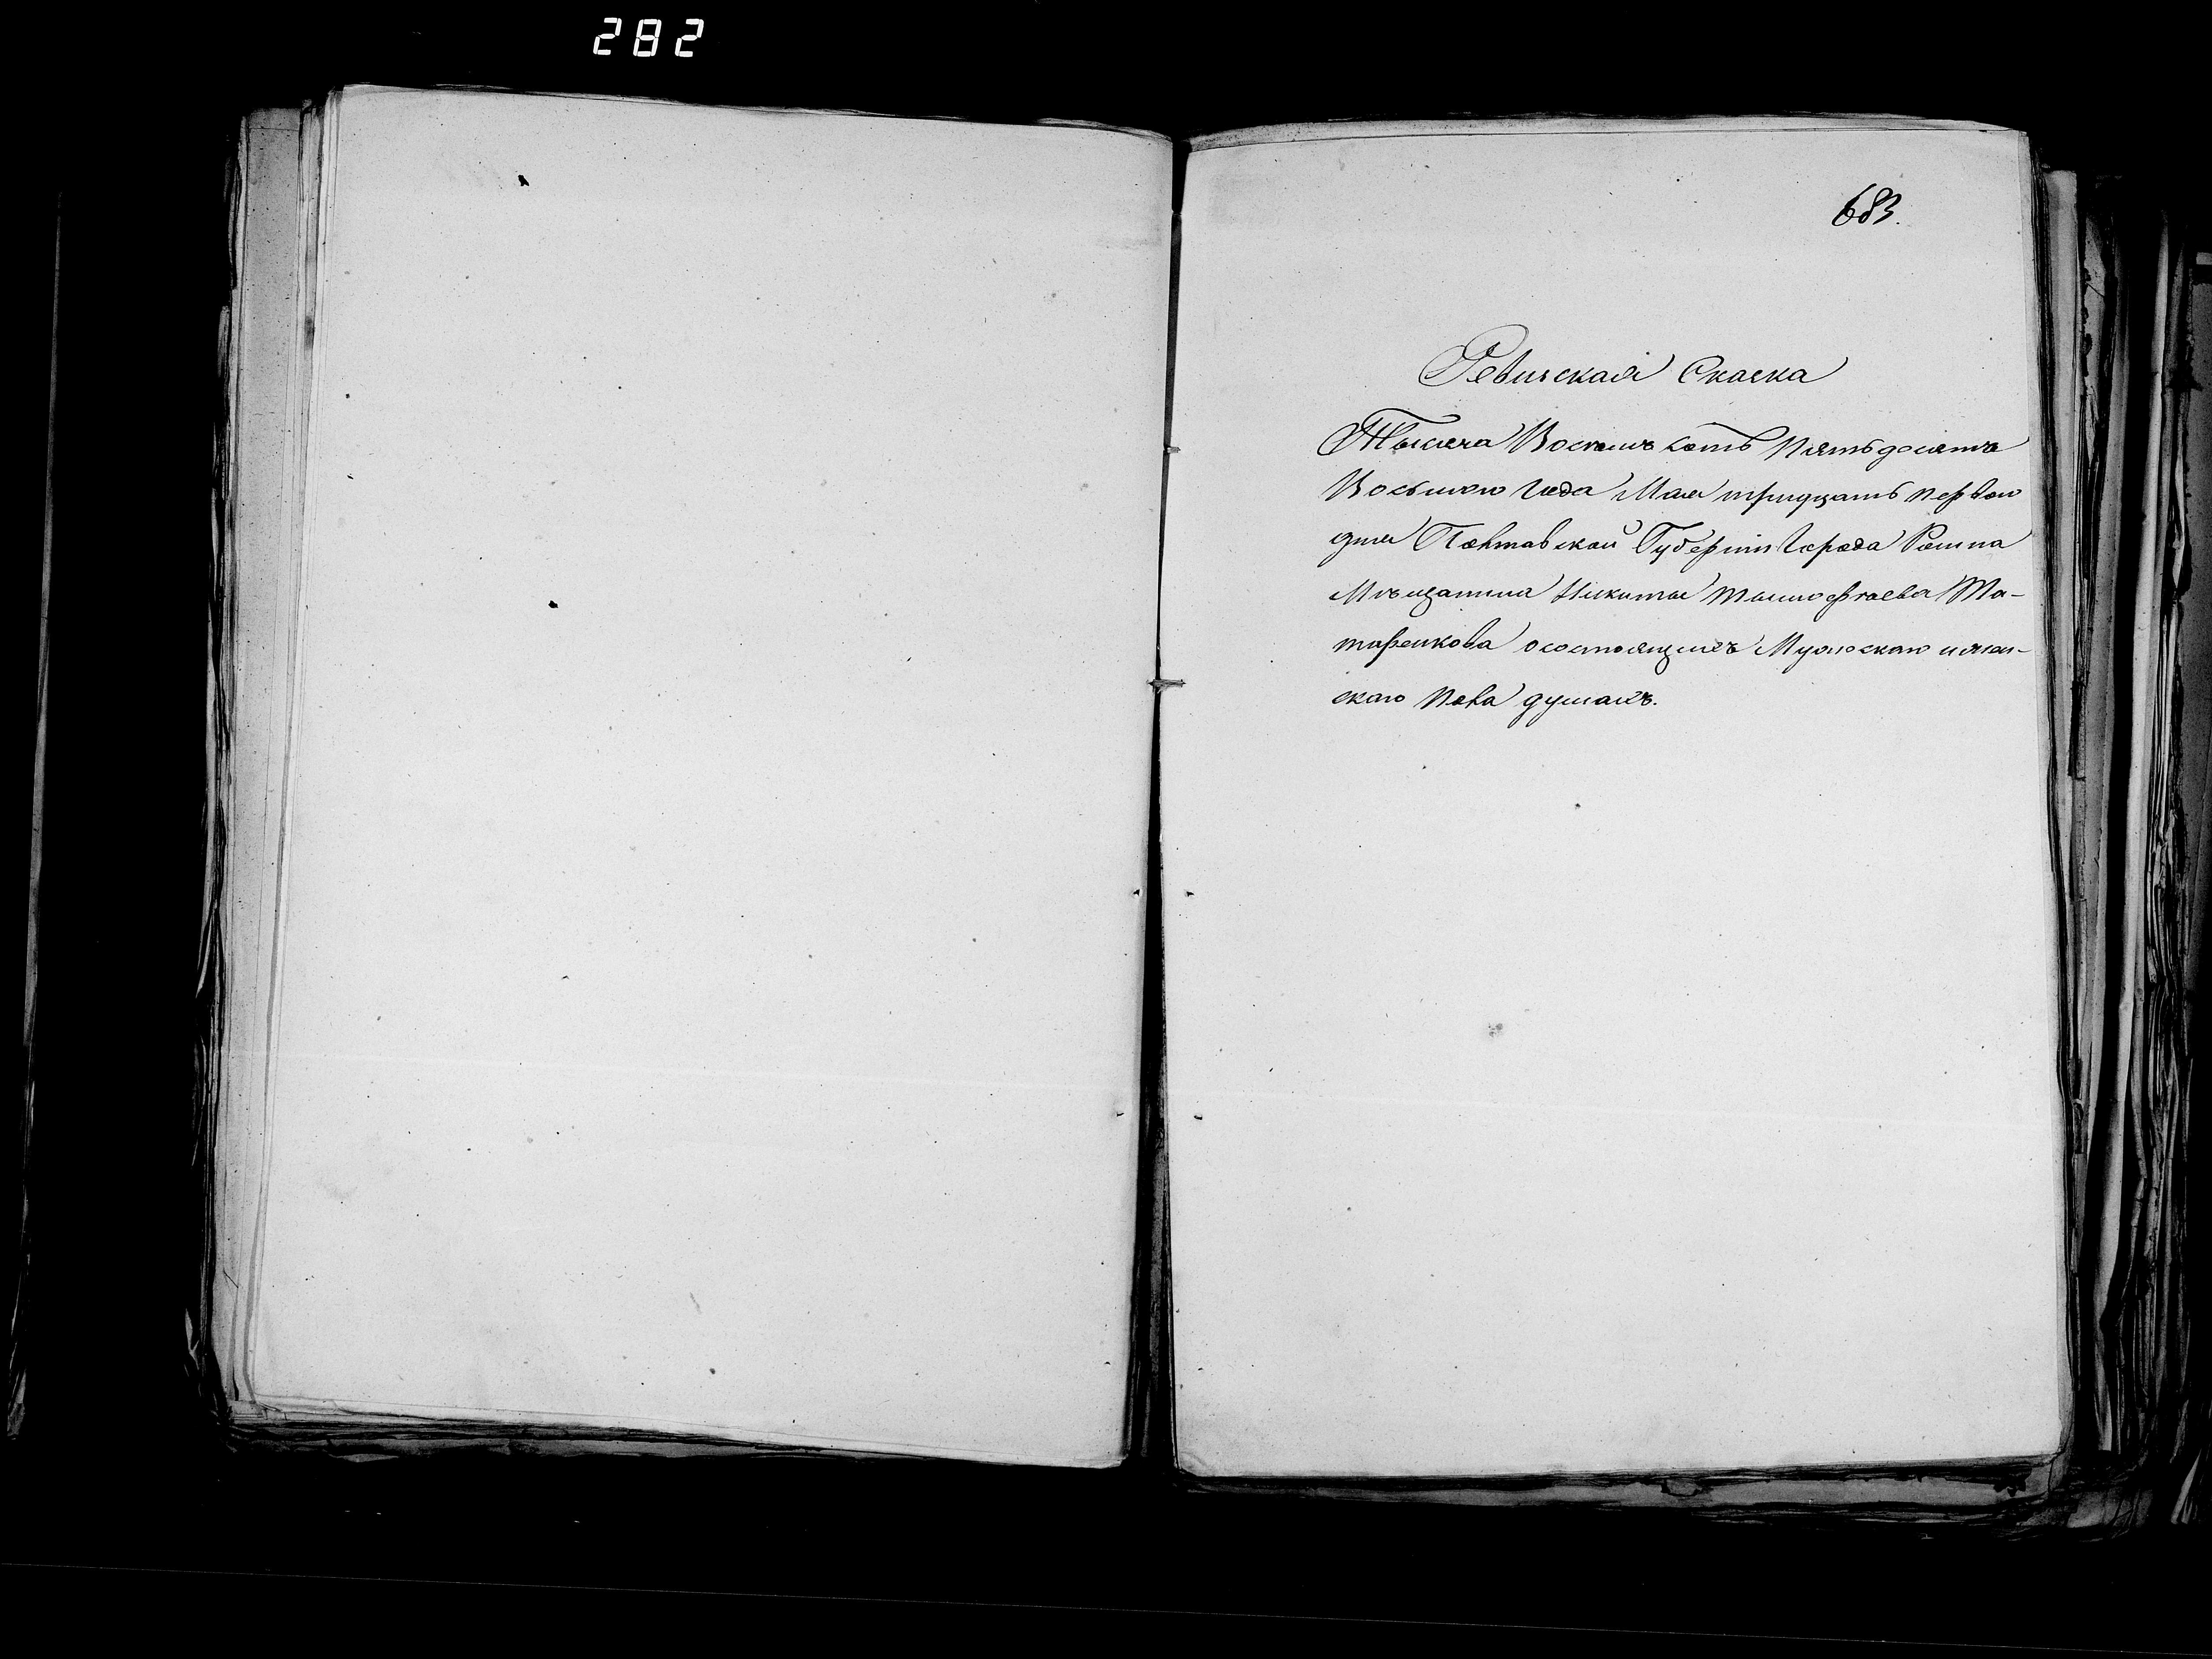 282
683.
Ревизская Скаска
Тысяча Восемъ сотъ Пятьдесятъ
Восьмого Года Мая тридцать первого
дня Полтавской Губерніи Города Ромна
Мѣщанина Никиты Тимофѣева Та-
таренкова осостоящихъ Мужскаго иженс-
скаго Пола душахъ.